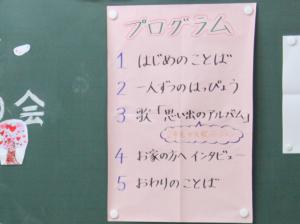 プログラム
1 はじめのことば
2 一人ずつのはっぴょう
3 歌「思い出のアルバム」
4 お家の方へインタビュー
5 おわりのことば
会